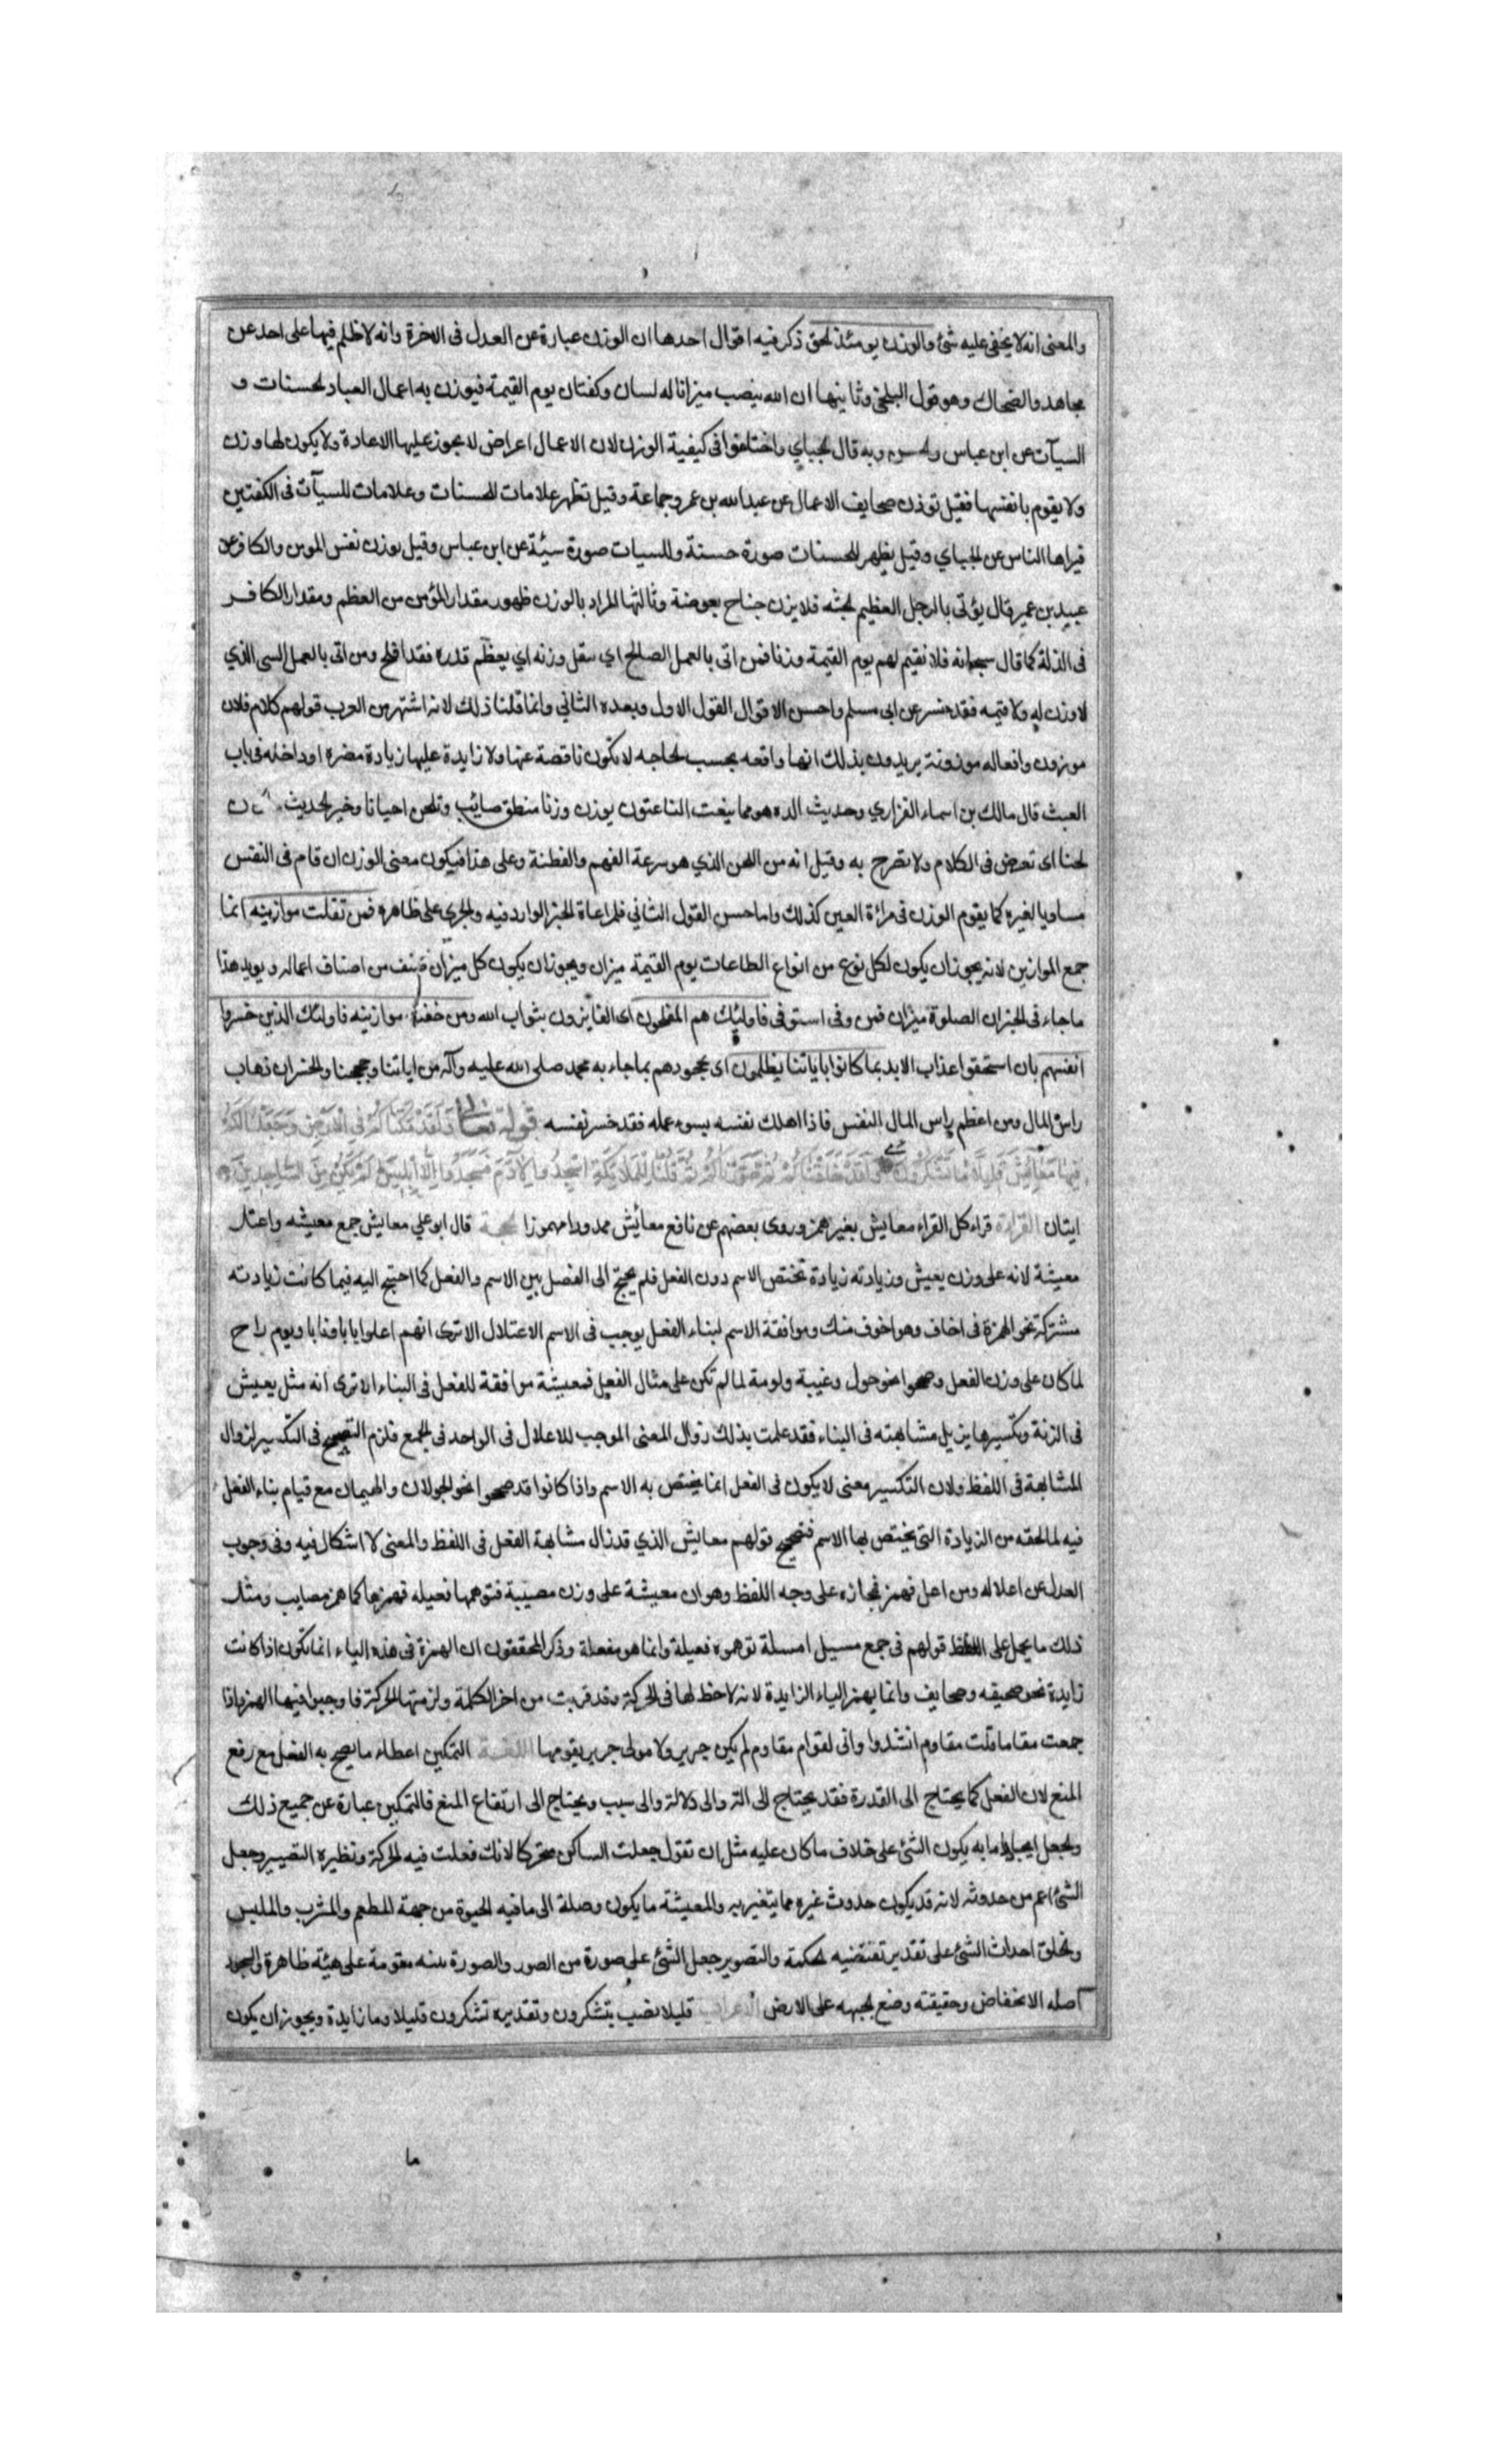 والمعنى انه لا يخفى عليه شئ والوزن يومئذ لحق ذكر فيه اقوال احدها ان الوزن عبارة عن العدل فى الاخرة وانه لا ظلم فيها على احد عن
مجاهد والضحاك وهو قول البلخى وثانيها ان الله ينصب ميزانا له لسان وكفتان يوم القيمة فيوزن به اعمال العباد لحسنات و
السيآت عن ابن عباس ولحسن وبه قال لجباي واختلفوا فى كيفية الوزن لان الاعمال اعراض لا يجوز عليها الاعادة ولا يكون لها وزن
ولا يقوم بانفسها فقيل توزن صحايف الاعمال عن عبدالله بن عمر وجماعة وقيل تظهر علامات للحسنات وعلامات للسيآت فى الكفتين
فيراها الناس عن لجباي وقيل يظهر للحسنات صورة حسنة وللسيات صورة سيئة عن ابن عباس وقيل يوزن نفس المومن والكافر عن
عبيد بن عمير قال يؤتى بالرجل العظيم لجثه فلا يزن جناح بعوضة وثالثها المراد بالوزن ظهور مقدار المؤمن من العظم ومقدار الكافر
فى الذلة كما قال سبحانه فلا نقيم لهم يوم القيمة وزنا فمن اتى بالعمل الصالح اي ثقل وزنه اي يعظم قدره فقد افلح ومن اتى بالعمل السى الذي
لا وزن له ولا قيمه فقد خسر عن ابى مسلم واحسن الاقوال القول الاول وبعده الثاني وانما قلنا ذلك لانه اشتهر من العرب قولهم كلام فلان
موزون وافعاله موزونة يريدون بذلك انها واقعه بحسب لحاجه لا تكون ناقصة عنها ولا زايدة عليها زيادة مضره او داخله فى باب
العبث قال مالك بن اسماء الفزاري وحديث الذه هو مما ينعت الناعتون يوزن وزنا منطق صائب وتلحن احيانا وخير لحديث ما كان
لحنا اى تعرض فى الكلام ولا تصرح به وقيل انه من اللحن الذي هو سرعة الفهم والفطنة وعلى هذا فيكون معنى الوزن ان قام فى النفس
مساويا لغيره كما يقوم الوزن فى مرآة العين كذلك واما حسن القول الثاني فلمراعاة لخبر الوارد فيه ولجري على ظاهره فمن ثقلت موازينه انما
جمع الموازين لانه يجوز ان يكون لكل نوع من انواع الطاعات يوم القيمة ميزان ويجوز ان يكون كل ميزان صنف من اصناف اعماله ويويد هذا
ما جاء فى لخبر ان الصلوة ميزان فمن وفى استوفى فاولئك هم المفلحون اى الفايزون بثواب الله ومن خفت موازينه فاولئك الذين خسروا
انفسهم بان استحقوا عذاب الابد بما كانوا باياتنا يظلمون اى بجحودهم بما جاء به محمد صلى الله عليه وآله من اياتنا وحججنا ولخسران ذهاب
راس المال ومن اعظم راس المال النفس فاذا اهلك نفسه بسوء عمله فقد خسر نفسه قوله تعالى ولقد مكناكم في الارض وجعلنا لكم
فيها معايش قليلا ما تشكرون ولقد خلقناكم ثم صورناكم ثم قلنا للملائكة اسجدوا لآدم فسجدوا إلا إبليس لم يكن من الساجدين
ايتان القراءة قراء كل القراء معايش بغير همز وروى بعضهم عن نافع معائش ممدودا مهموزا لحجة قال ابو علي معايش جمع معيشه واعتل
معيشة لانه على وزن يعيش وزيادته زيادة تختص الاسم دون الفعل فلم يحتج الى الفصل بين الاسم والفعل كما احتيج اليه فيما كانت زيادته
مشتركة نحو الهمزة فى اخاف وهو اخوف منك وموافقة الاسم لبناء الفعل يوجب فى الاسم الاعتلال الا ترى انهم اعلوا بابا ونابا ويوم راح
لما كان على وزن الفعل وصححوا نحو حول وعيبة ولومة لما لم تكن على مثال الفعل فمعيشة موافقة للفعل فى البناء الا ترى انه مثل يعيش
فى الزنة وتكسيرها يزيل مشابهته فى البناء فقد علمت بذلك زوال المعنى الموجب للاعلال فى الواحد فى لجمع فلزم التصحيح فى التكسير لزوال
المشابهة فى اللفظ ولان التكسير معنى لا يكون فى الفعل انما يختص به الاسم واذا كانوا قد صححوا نحو لجولان والهيمان مع قيام بناء الفعل
فيه لما لحقه من الزيادة التى يختص بها الاسم فتصحيح قولهم معايش الذي قد زال مشابهة الفعل فى اللفظ والمعنى لا اشكال فيه وفى وجوب
العدل عن اعلاله ومن اعل فهمز فمجازه على وجه اللفظ وهو ان معيشة على وزن مصيبة فتوهمها فعيله فهمزها كما همز مصايب ومثل
ذلك ما يحمل على اللفظ قولهم فى جمع مسيل امسلة توهموه فعيلة وانما هو مفعلة وذكر المحققون ان الهمزة فى هذه الياء انما تكون اذا كانت
زايدة نحو صحيفه وصحايف وانما يهمز الياء الزايدة لانه لا حظ لها فى لحركة وقد قربت من اخر الكلمة ولزمتها لحركة فاوجبوا فيها الهمز واذا
جمعت مقاما قلت مقاوم انشدوا وانى لقوام مقاوم لم يكن جرير ولا مولى جرير يقومها اللغة التمكين اعطاء ما يصح به الفعل مع رفع
المنع لان الفعل كما يحتاج الى القدرة فقد يحتاج الى الة والى دلالة والى سبب ويحتاج الى ارتفاع المنع فالتمكين عبارة عن جميع ذلك
ولجعل ايجاد ما به يكون الشئ على خلاف ما كان عليه مثل ان تقول جعلت الساكن متحركا لانك فعلت فيه لحركة ونظيره التصيير وجعل
الشئ اعم من حدوثه لانه قد يكون حدوث غيره مما يتغير به والمعيشة ما يكون وصلة الى ما فيه الحيوة من جهة المطعم والمشرب والملبس
ولخلق احداث الشئ على تقدير تقتضيه لحكمة والتصوير جعل الشئ على صورة من الصور والصورة بنيه مقومة على هيئة ظاهرة والسجود
اصله الانخفاض وحقيقته وضع لجبهه على الارض الاعراب قليلا نصب بتشكرون وتقديره تشكرون قليلا وما زايدة ويجوز ان يكون
ما